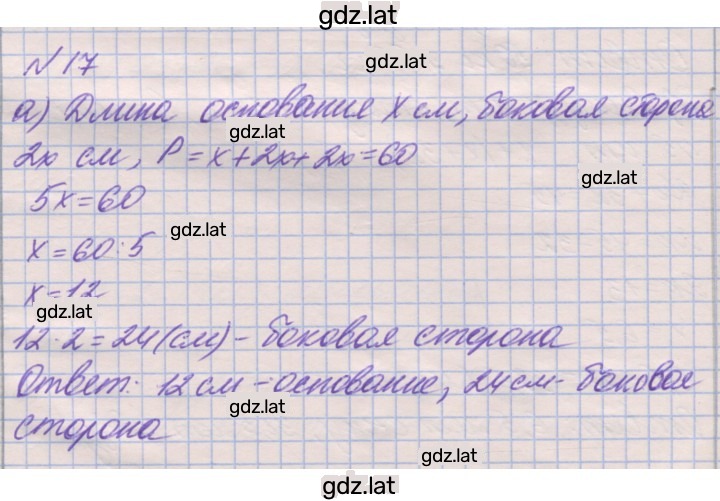 gdz.lat
N 17
gdz.lat
а) Длина основания x см, боковая сторона
gdz.lat
2x см, P=x+2x+2x=60
gdz.lat
5x=60
gdz.lat
x=60:5
x=12
gdz.lat
12·2=24(см)-боковая сторона
Ответ: 12 см -основание, 24 см- боковая
gdz.lat
сторона
gdz.lat
gdz.lat